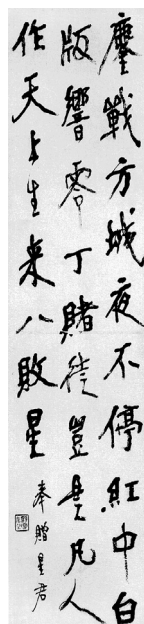 鏖戰方城夜不停紅中白
版響零丁賭徒豈是凡人
作天上生來八敗星
奉贈星君